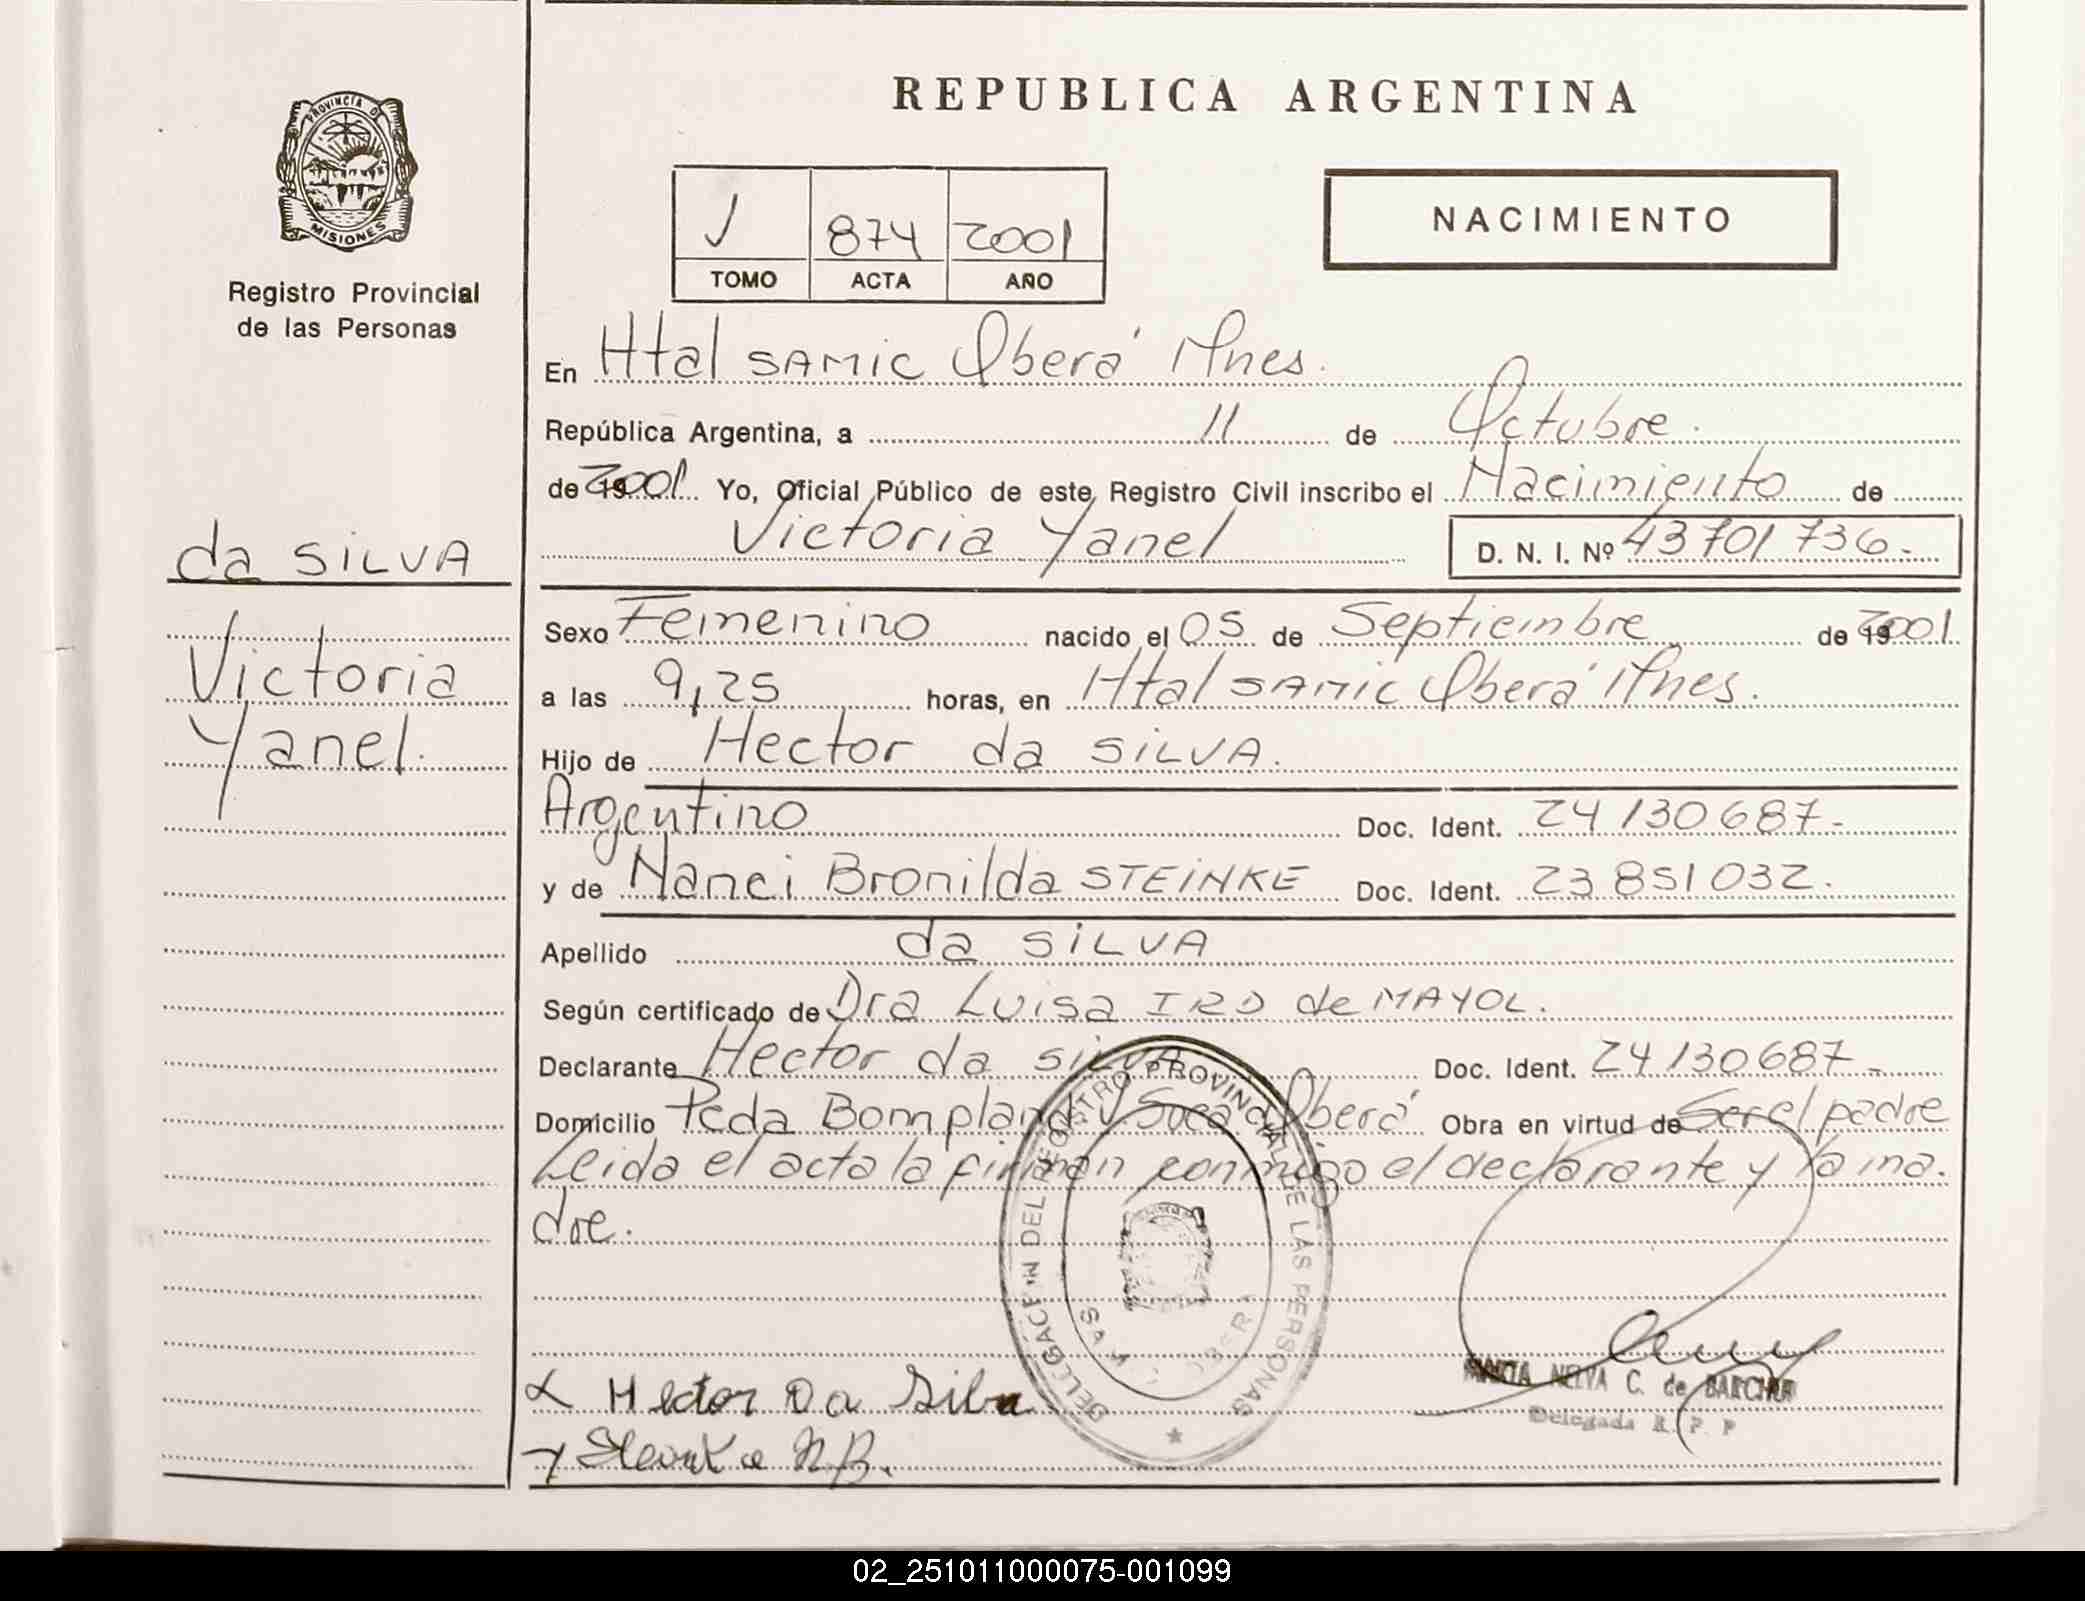 REPUBLICA ARGENTINA
PROVINCIA DE
MISIONES
Registro Provincial
de las Personas
V 874 2001
TOMO ACTA AÑO
NACIMIENTO
En Htal SAMIC Oberá Mnes.
República Argentina, a 11 de Octubre.
de 2001 Yo, Oficial Público de este Registro Civil inscribo el Nacimiento de
Victoria Yanel D. N. I. Nº 43701736.-
da SILVA
Victoria
Yanel.
Sexo Femenino nacido el 05 de Septiembre de 2001
a las 9,25 horas, en Htal SAMIC Oberá Mnes.
Hijo de Hector da SILVA.
Argentino Doc. Ident. 24130687.-
y de Nanci Bronilda STEINKE Doc. Ident. 23851032.
Apellido da SILVA
Según certificado de Dra Luisa IRD de MAYOL.
Declarante Hector da SILVA Doc. Ident. 24130687.-
Domicilio Pcda Bompland y Sueca Oberá Obra en virtud de Ser el padre
Leida el acta la firman conmigo el declarante y la ma.
dre.
DELEGACION DEL REGISTRO PROVINCIAL DE LAS PERSONAS
Hector Da Silva
N.B.
NELVA C. de
Delegada R. P. P
02_251011000075-001099